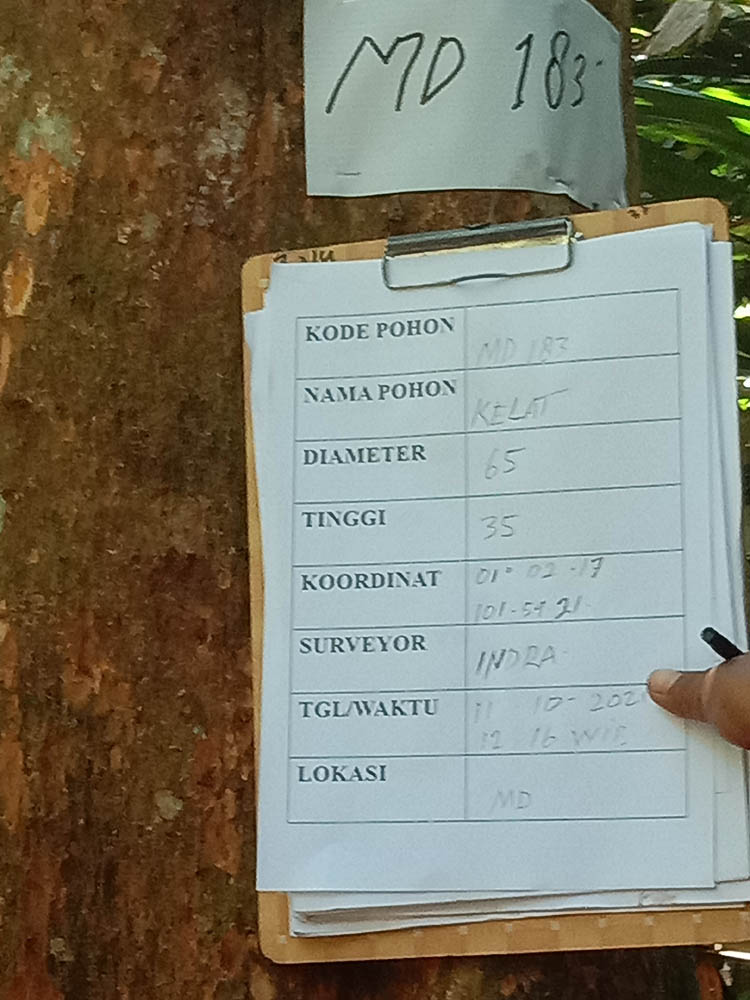 MD 183
KODE POHON MD 183
NAMA POHON KELAT
DIAMETER 65
TINGGI 35
KOORDINAT 01° 02 -17
101-54 21-
SURVEYOR INDRA
TGL/WAKTU 11 10-
12 16 WIB
LOKASI MD